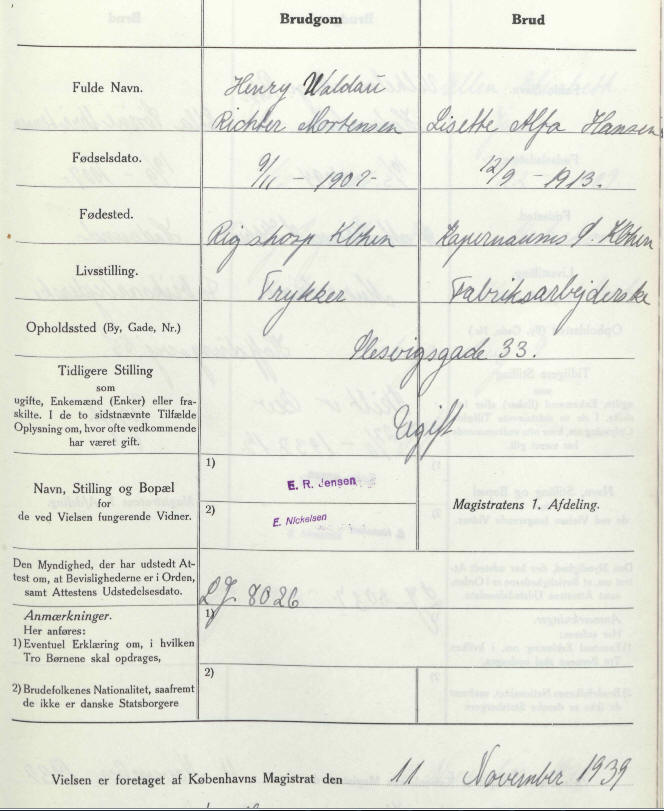 Brudgom Brud
Fulde Navn. Henry Waldau
Richter Mortensen Lisette Alfa Hansen
Fødselsdato. 9/11 - 1907- 12/9 - 1913.
Fødested. Rigshosp Kbhvn Kapernaums S. Kbhvn
Livsstilling. Trykker Fabriksarbejderske
Opholdssted (By, Gade, Nr.) Slesvigsgade 33.
Tidligere Stilling
som
ugifte, Enkemænd (Enker) eller fra-
skilte. I de to sidstnævnte Tilfælde
Oplysning om, hvor ofte vedkommende
har været gift.
Ugift
Navn, Stilling og Bopæl
for
de ved Vielsen fungerende Vidner.
1) E. R. Jensen
2) E. Nickelsen
Magistratens 1. Afdeling.
Den Myndighed, der har udstedt At-
test om, at Bevislighederne er i Orden,
samt Attestens Udstedelsesdato.
LJ. 8026
Anmærkninger.
Her anføres:
1) Eventuel Erklæring om, i hvilken
Tro Børnene skal opdrages,
1)
2) Brudefolkenes Nationalitet, saafremt
de ikke er danske Statsborgere
2)
Vielsen er foretaget af Københavns Magistrat den 11 November 1939